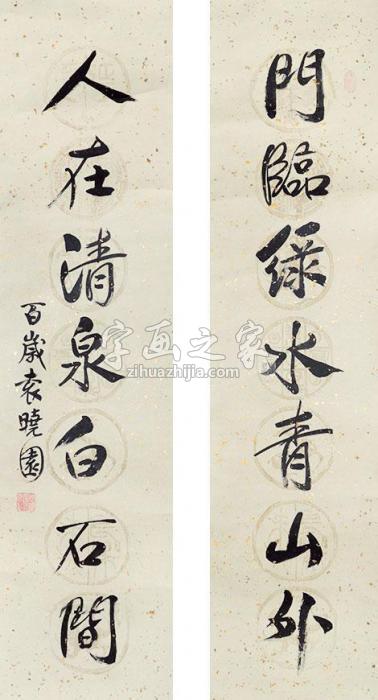 門臨綠水青山外
人在清泉白石間
百歲袁曉園
字画之家
zihuazhijia.com